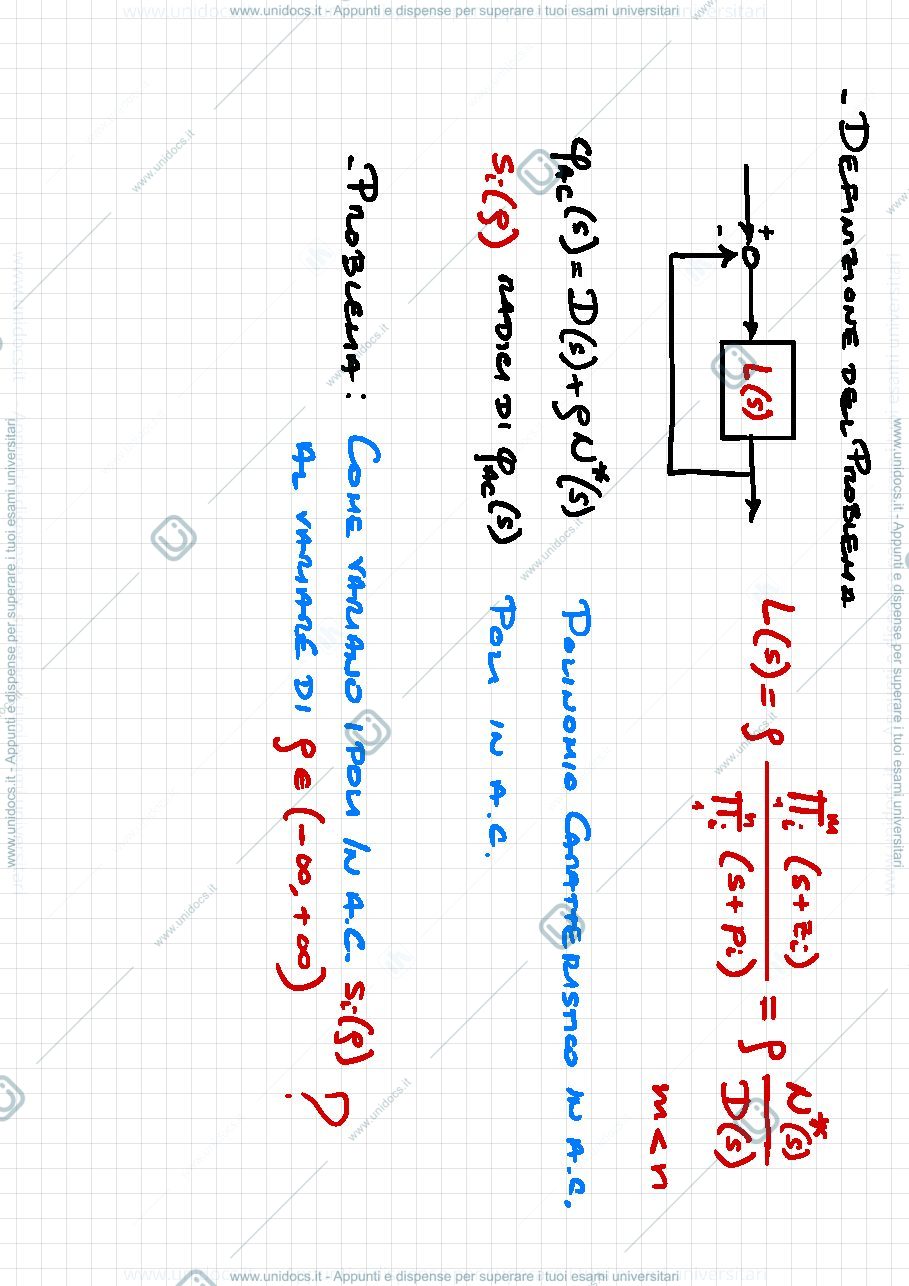 www.unidocs.it - Appunti e dispense per superare i tuoi esami universitari
- DEFINIZIONE DEL PROBLEMA
+
-
L(s)
L(s) = ρ ∏₁ᵐᵢ (s+zᵢ) / ∏₁ⁿᵢ (s+pᵢ) = ρ N*(s) / D(s)
m < n
φAC(s) = D(s) + ρN*(s) POLINOMIO CARATTERISTICO IN A.C.
sᵢ(ρ) RADICI DI φAC(s) POLI IN A.C.
- PROBLEMA: COME VARIANO I POLI IN A.C. sᵢ(ρ)
AL VARIARE DI ρ ∈ (-∞,+∞) ?
www.unidocs.it - Appunti e dispense per superare i tuoi esami universitari
www.unidocs.it - Appunti e dispense per superare i tuoi esami universitari
www.unidocs.it - Appunti e dispense per superare i tuoi esami universitari
www.unidocs.it
www.unidocs.it
www.unidocs.it
www.unidocs.it
www.unidocs.it
www.unidocs.it